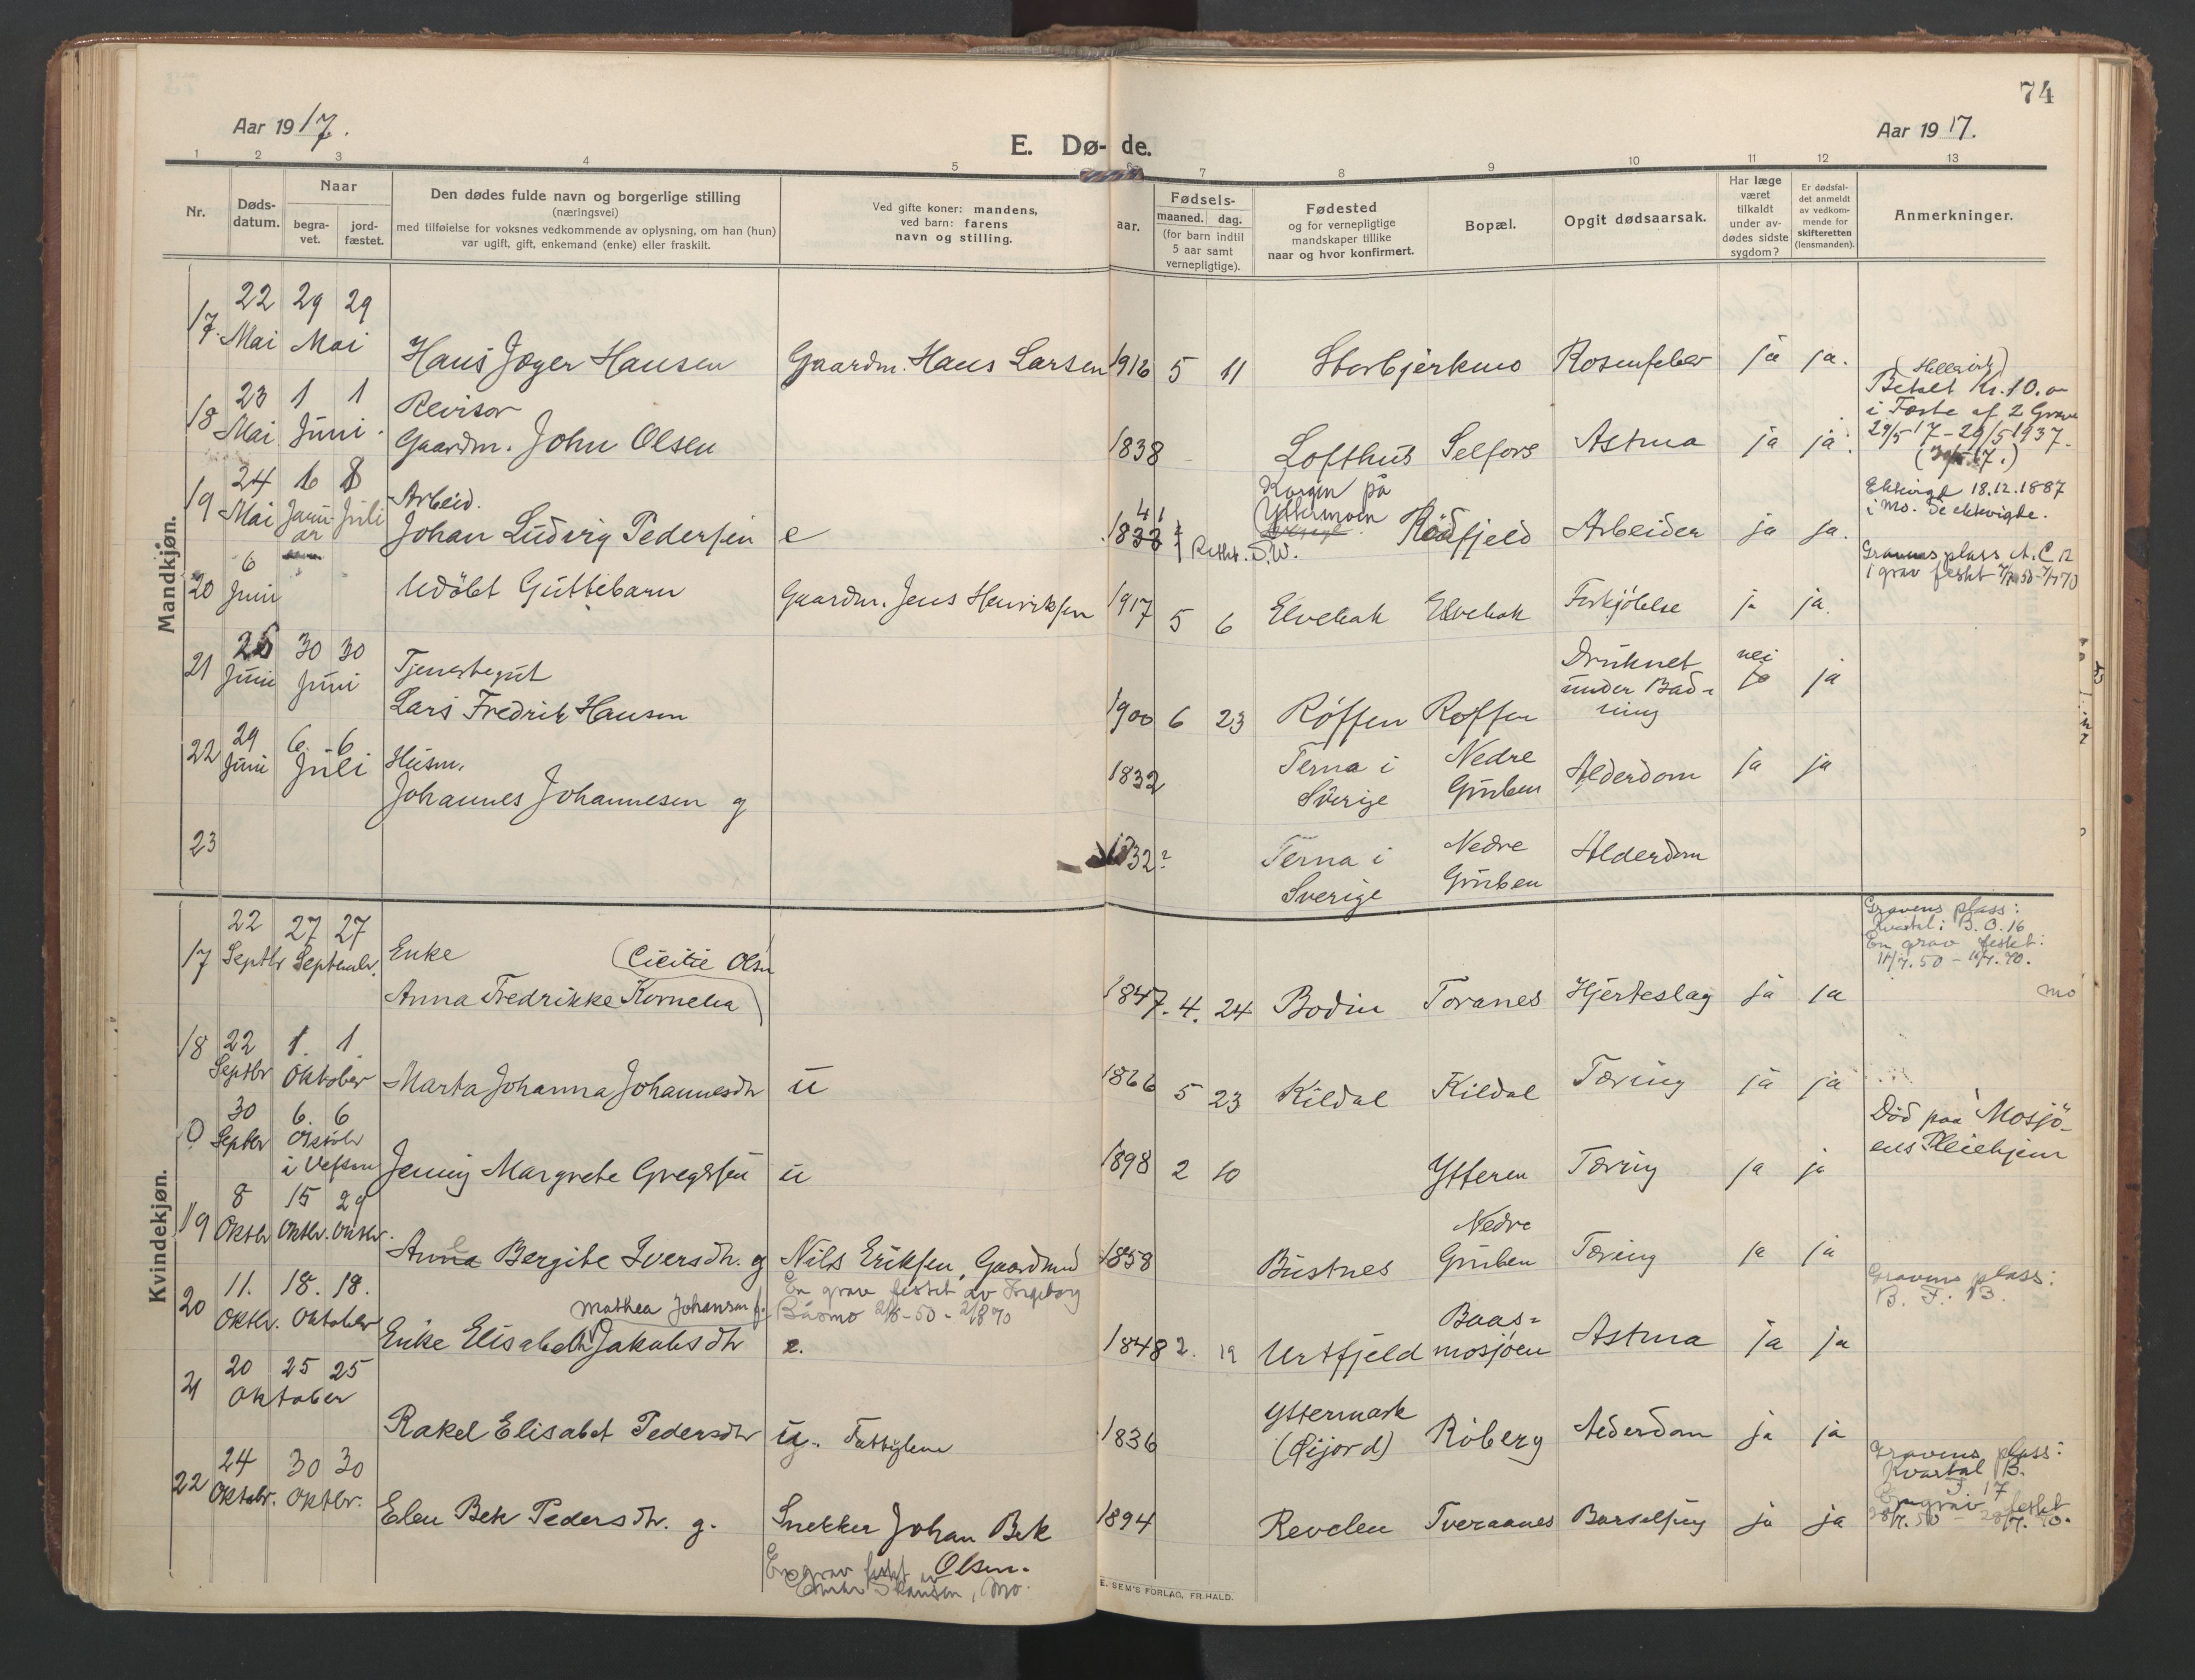 74
Aar 1917.
E. Dø- de.
Aar 1917.
1 2 3 4 5 6 7 8 9 10 11 12 13
Nr.
Døds-
datum.
Naar
begra-
vet.
jord-
fæstet.
Den dødes fulde navn og borgerlige stilling
(næringsvei)
med tilføielse for voksnes vedkommende av oplysning, om han (hun)
var ugift, gift, enkemand (enke) eller fraskilt.
Ved gifte koner: mandens,
ved barn: farens
navn og stilling.
aar.
Fødsels-
maaned. dag.
(for barn indtil
5 aar samt
vernepligtige).
Fødested
og for vernepligtige
mandskaper tillike
naar og hvor konfirmert.
Bopæl.
Opgit dødsaarsak.
Har læge
været
tilkaldt
under av-
dødes sidste
sygdom?
Er dødsfal-
det anmeldt
av vedkom-
mende for
skifteretten
(lensmanden).
Anmerkninger.
Mandkjøn.
22 29 29
17. Mai Mai
Hans Jæger Hansen Gaardm. Hans Larsen 1916 5 11 Storbjerkmo Rosenfeber ja ja.
23 1 1 Revisor
18 Mai Juni. Gaardm. John Olsen 1838 Lofthus Selfors Astma ja ja.
Betalt Kr. 10.00
i Fæste af 2 Grave
29/5 17 - 29/5 1937.
24 6 8 Arbeid.
19 Mai Juli
Johan Ludvig Pedersen e
1838 41
Korgen på
Yttermoen
Rettet. S.W.
Rødfjeld Arbeider ja ja.
Ektevigd 18.12.1887
i Mo. De ektevigde.
6
20 Juni Udøbt Guttebarn Gaardm. Jens Henriksen 1917 5 6 Elvebak Elvebak Forkjølelse ja ja.
Gravens plass A. C. 12
1 grav festet
30 30
21 Juni Juni Tjenestegut
Lars Fredrik Hansen 1900 6 23 Røffen Røffen
Druknet
under Bad-
ning
nei ja
29 6. 6
22 Juni Juli Husm.
Johannes Johannesen g 1832
Terna i
Sverige
Nedre
Gruben
Alderdom ja ja
23
1832?
Terna i
Sverige
Nedre
Gruben
Alderdom
Kvindekjøn.
22 27 27
17 Septbr Septembr. Enke (Cicilie Olsen
Anna Fredrikke Kornelia) 1847. 4. 24 Bodin Toranes Hjerteslag ja ja
Gravens plass:
Kvartal: B. O. 16
En grav festet:
Mo
22 1. 1.
18 Septbr Oktober Marta Johanna Johannesdtr u 1866 5 23 Kildal Kildal Tæring ja ja
30 6. 6
0 Septbr Oktobr
i Vefsen
Jenny Margrete Gregersen u 1898 2 10 Ytteren Tæring ja ja
Død paa Mosjø-
ens Pleiehjem
8 15 29
19 Oktbr Oktbr. Oktbr.
Anne Bergite Iversdtr. g Nils Eriksen, Gaardmd 1858 Bustnes
Nedre
Gruben
Tæring ja ja
11. 18. 18.
20 Oktbr. Oktober
Mathea Johansen f.
Enke Elisabeth Jakobsdtr e.
En grav festet av Ingeborg
Båsmo 2/8-50 - 2/8 70
1848 2. 19 Urtfjeld
Baas-
mosjøen
Astma ja ja
Gravens plass:
B. F. 13.
20 25 25
21 Oktober
Rakel Elisabet Pedersdtr u. Fattiglem 1836
Yttermark
(Øijord)
Røberg Alderdom ja ja
24 30 30
22 Oktobr. Oktbr.
Elen Bek Pedersdtr. g. Snekker Johan Bek
Olsen.
1894 Revelen Tveraanes Barselseng ja ja
Gravens plass:
Kvartal B.
F. 17
En grav festet
28/7. 50 - 28/7. 70.
En grav festet av
Einar Skansen, Mo.
E. SEM'S FORLAG, FR.HALD.